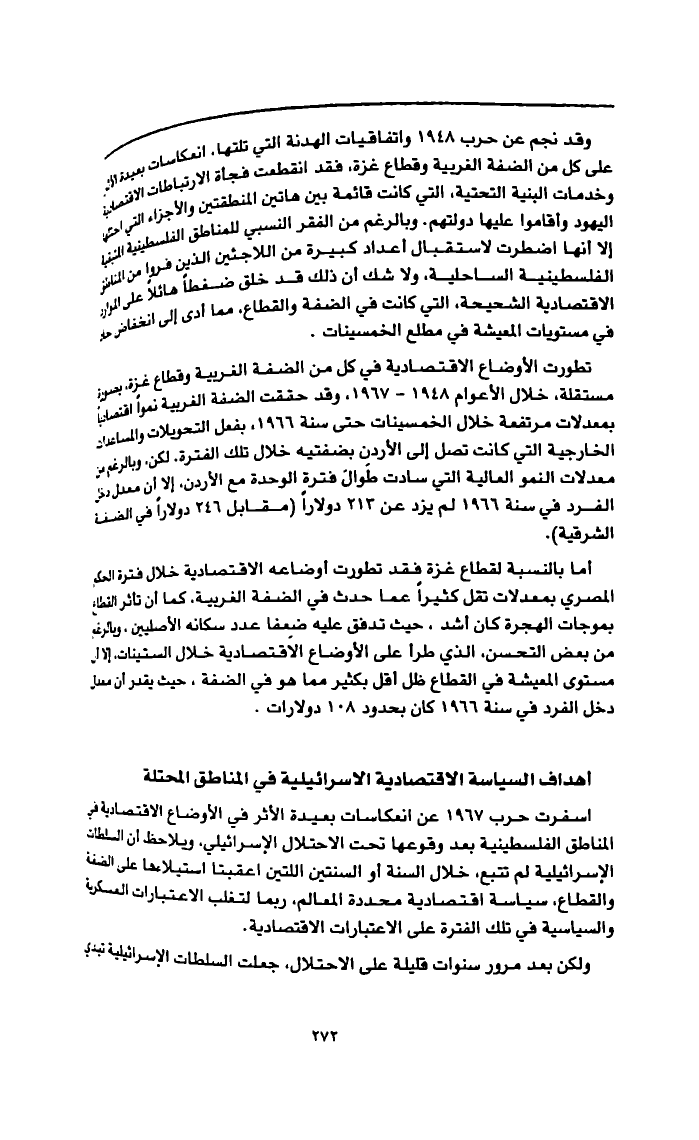 وقد نجم عن حرب ١٩٤٨ واتفاقيات الهدنة التي تلتها، انعكاسات بعيدة الأثر
على كل من الضفة الغربية وقطاع غزة، فقد انقطعت فجأة الارتباطات الاقتصادية
وخدمات البنية التحتية، التي كانت قائمة بين هاتين المنطقتين والأجزاء التي احتلها
اليهود وأقاموا عليها دولتهم. وبالرغم من الفقر النسبي للمناطق الفلسطينية المتبقية
إلا أنها اضطرت لاستقبال أعداد كبيرة من اللاجئين الذين فروا من المناطق
الفلسطينية الساحلية، ولا شك أن ذلك قد خلق ضغطاً هائلاً على الموارد
الاقتصادية الشحيحة، التي كانت في الضفة والقطاع، مما أدى إلى انخفاض حاد
في مستويات المعيشة في مطلع الخمسينات .
تطورت الأوضاع الاقتصادية في كل من الضفة الغربية وقطاع غزة، بصورة
مستقلة، خلال الأعوام ١٩٤٨ - ١٩٦٧، وقد حققت الضفة الغربية نمواً اقتصادياً
بمعدلات مرتفعة خلال الخمسينات حتى سنة ١٩٦٦، بفعل التحويلات والمساعدات
الخارجية التي كانت تصل إلى الأردن بضفتيه خلال تلك الفترة. لكن، وبالرغم من
معدلات النمو العالية التي سادت طوالَ فترة الوحدة مع الأردن، إلا أن معدل دخل
الفرد في سنة ١٩٦٦ لم يزد عن ٢١٣ دولاراً (مقابل ٢٤٦ دولاراً في الضفة
الشرقية).
أما بالنسبة لقطاع غزة فقد تطورت أوضاعه الاقتصادية خلال فترة الحكم
المصري بمعدلات تقل كثيراً عما حدث في الضفة الغربية، كما أن تأثر القطاع
بموجات الهجرة كان أشد ، حيث تدفق عليه ضعفا عدد سكانه الأصليين ، وبالرغم
من بعض التحسن، الذي طرأ على الأوضاع الاقتصادية خلال الستينات، إلا أن
مستوى المعيشة في القطاع ظل أقل بكثير مما هو في الضفة ، حيث يقدر أن معدل
دخل الفرد في سنة ١٩٦٦ كان بحدود ١٠٨ دولارات .
أهداف السياسة الاقتصادية الاسرائيلية في المناطق المحتلة
اسفرت حرب ١٩٦٧ عن انعكاسات بعيدة الأثر في الأوضاع الاقتصادية في
المناطق الفلسطينية بعد وقوعها تحت الاحتلال الإسرائيلي، ويلاحظ أن السلطات
الإسرائيلية لم تتبع، خلال السنة أو السنتين اللتين اعقبتا استيلاءها على الضفة
والقطاع، سياسة اقتصادية محددة المعالم، ربما لتغلب الاعتبارات العسكرية
والسياسية في تلك الفترة على الاعتبارات الاقتصادية.
ولكن بعد مرور سنوات قليلة على الاحتلال، جعلت السلطات الإسرائيلية تبدي
٢٧٢